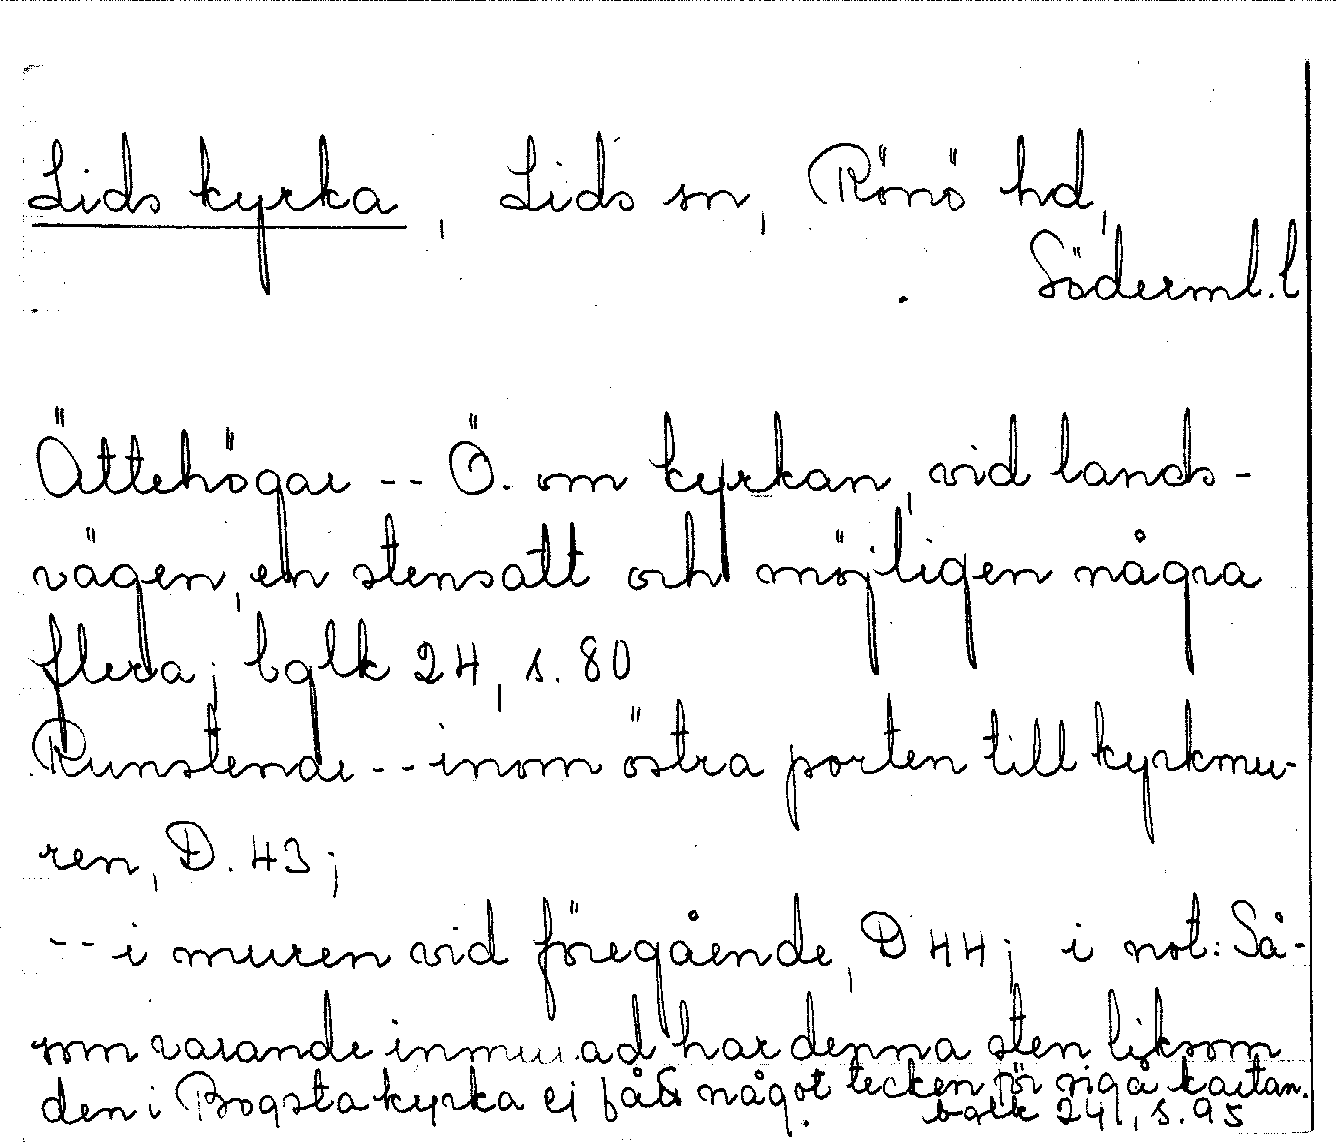 Lids kyrka, Lids sn, Rönö hd,
Söderml. l
Ättehögar -- Ö. om kyrkan, vid lands-
vägen, en stensatt och möjligen några
flera; bglk 24, s. 80
Runstenar -- inom östra porten till kyrkmu-
ren, D. 43;
-- i muren vid föregående, D 44; i not: Så-
som varande inmurad har denna sten liksom
den i Bogsta kyrka ej fått något tecken för sig å kartan.
bglk 24, s. 95